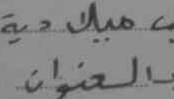 ميلادية
العنوان